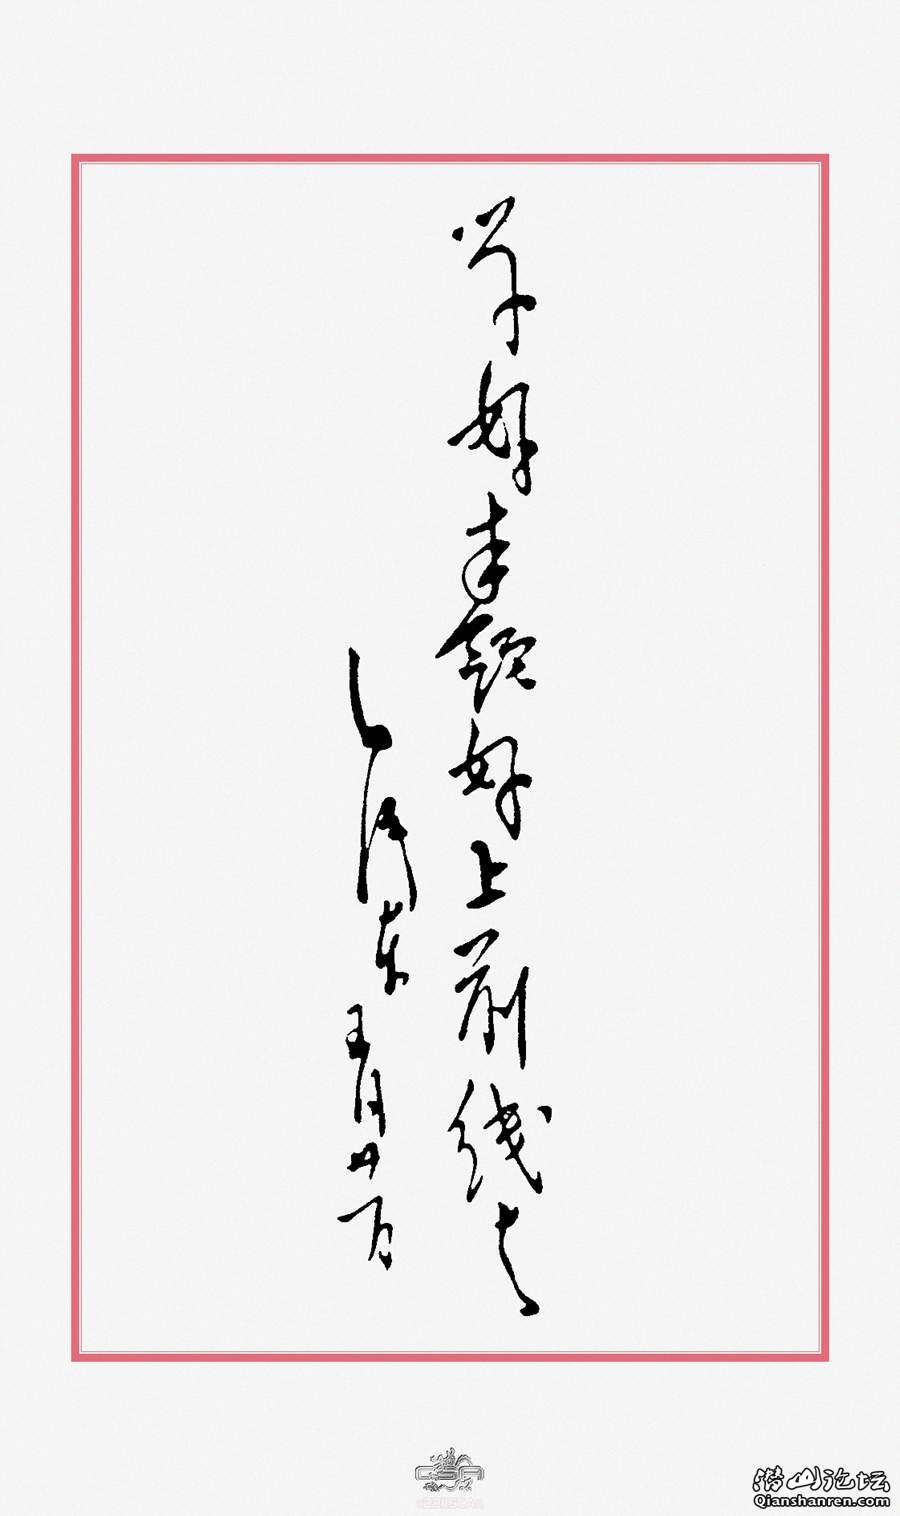 学好本领好上前线去
毛泽东
五月廿一日
潜山论坛
Qianshanren.com